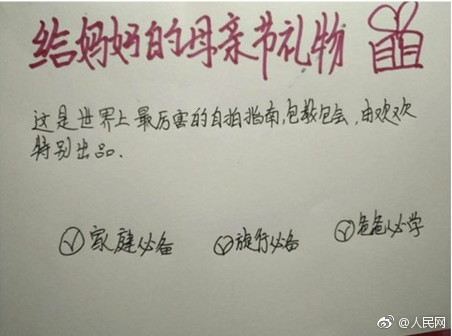 给妈妈的母亲节礼物
这是世界上最厉害的自拍指南,包教包会,由欢欢
特别出品.
家庭必备
旅行必备
爸爸必学
@人民网